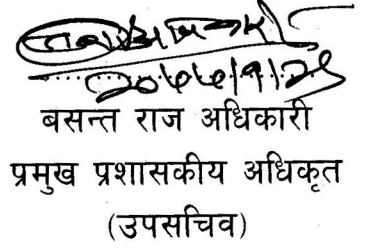 २०७७।९।२९
बसन्त राज अधिकारी
प्रमुख प्रशासकीय अधिकृत
(उपसचिव)